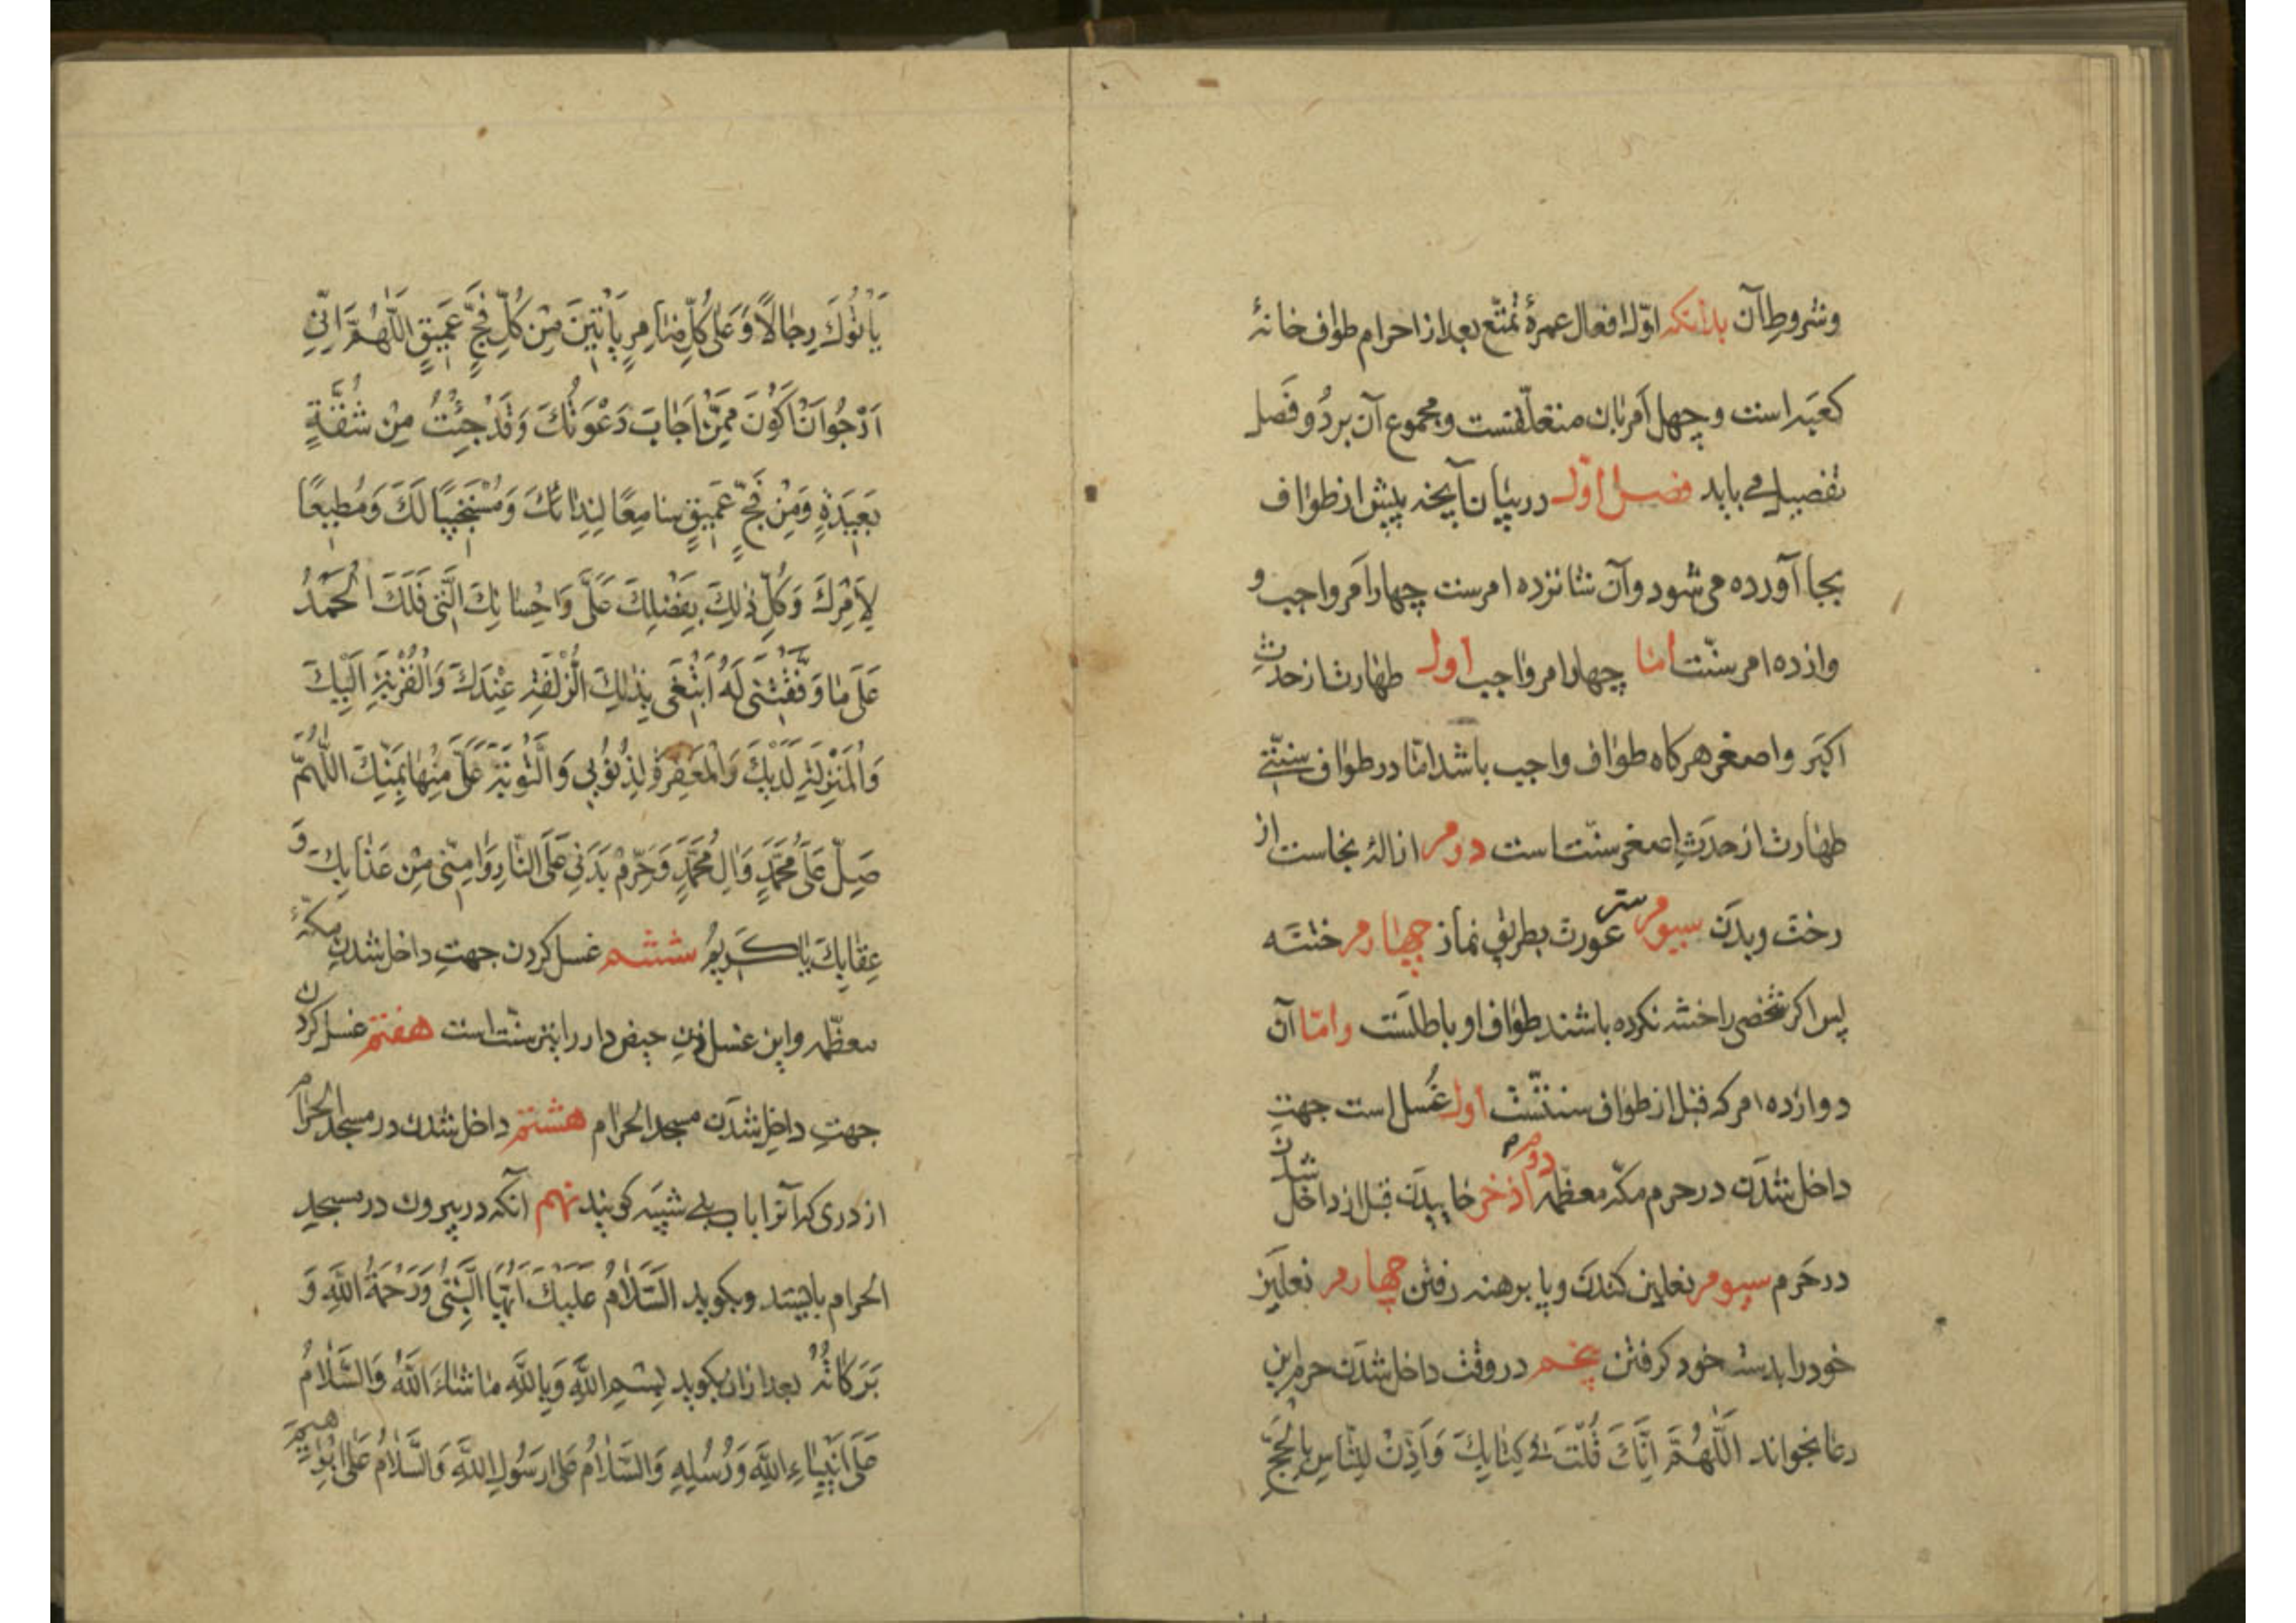 وشروط آن بدانکه اوّل افعال عمرهٔ تمتّع بعد از احرام طواف خانهٔ
کعبه است و چهل امر بان متعلّقست و مجموع آن بر دُو فَصل
تفصیل می یابد فصل اوّل در بیان آنچه پیش از طواف
بجا آورده می شود و آن شانزده امرست چهار امر واجب و
وازده امر سنّت امّا چهار امر واجب اول طهارت از حدثِ
اکبَر و اصغر هر کاه طواف واجب باشد امّا در طواف سنّتی
طهارت از حدَثِ اصغر سنّت است دوم ازالهٔ نجاست از
رخت و بدَن سیوم ستر عورت بطریق نماز چهارم ختنَه
پس اکر شخصی را ختنه نکرده باشند طواف او باطلَست و امّا آن
دوازده امر که قبل از طواف سنّتست اول غُسل است جهتِ
داخل شدَن در حرم مکّه معظّمه دوم اذخر خاییدَن قبل از داخل شدن
در حَرم سیوم نعلین کندَن و پا برهنه رفتن چهارم نعلَین
خود را بدست خود کرفتن پنجم در وقت داخل شدَن حرم این
دعا بخواند اَللّٰهُمَّ اِنَّكَ قُلْتَ فی كِتٰابِكَ وَاَذِّنْ لِلنّٰاسِ بِالْحَجِّ
یَاْتُوكَ رِجٰالاً وَ عَلٰی كُلِّ ضٰامِرٍ یَاْتینَ مِنْ كُلِّ فَجٍّ عَمیقٍ اَللّٰهُمَّ اِنّی
اَرْجُو اَنْ اَكُونَ مِمَّنْ اَجٰابَ دَعْوَتَكَ وَقَدْ جِئْتُ مِنْ شُقَّةٍ
بَعیدَةٍ وَمِنْ فَجٍّ عَمیقٍ سٰامِعًا لِنِدٰائِكَ وَمُسْتَجیبًا لَكَ وَمُطیعًا
لِاَمْرِكَ وَكُلُّ ذٰلِكَ بِفَضْلِكَ عَلَیَّ وَاِحْسٰانِكَ اِلَیَّ فَلَكَ الْحَمْدُ
عَلٰی مٰا وَفَّقْتَنی لَهُ اَبْتَغی بِذٰلِكَ الزُّلْفَةَ عِنْدَكَ وَالْقُرْبَةَ اِلَیْكَ
وَالْمَنْزِلَةَ لَدَیْكَ وَالْمَغْفِرَةَ لِذُنُوبی وَالتَّوْبَةَ عَلَیَّ مِنْهٰا بِمَنِّكَ اللّٰهُمَّ
صَلِّ عَلٰی مُحَمَّدٍ وَاٰلِ مُحَمَّدٍ وَحَرِّمْ بَدَنی عَلَی النّٰارِ وَاٰمِنّی مِنْ عَذٰابِكَ وَ
عِقٰابِكَ یٰا كَریمُ ششم غسل کردن جهتِ داخل شدنِ مکّهٔ
معظّمه و این غسل زنِ حیض دار را نیز سنّت است هفتم غسل کردن
جهتِ داخل شدَن مسجد الحرام هشتم داخل شدن در مسجد الحرام
از دری که آنرا باب بنی شیبَه کویند نهم آنکه در بیرون در مسجد
الحرام بایستد و بکوید اَلسَّلاٰمُ عَلَیْكَ اَیُّهَا النَّبِیُّ وَرَحْمَةُ اللّٰهِ وَ
بَرَكٰاتُهُ بعد از ان بکوید بِسْمِ اللّٰهِ وَبِاللّٰهِ مٰا شٰاءَ اللّٰهُ وَالسَّلاٰمُ
عَلٰی اَنْبِیٰاءِ اللّٰهِ وَرُسُلِهِ وَالسَّلاٰمُ عَلٰی رَسُولِ اللّٰهِ وَالسَّلاٰمُ عَلٰی